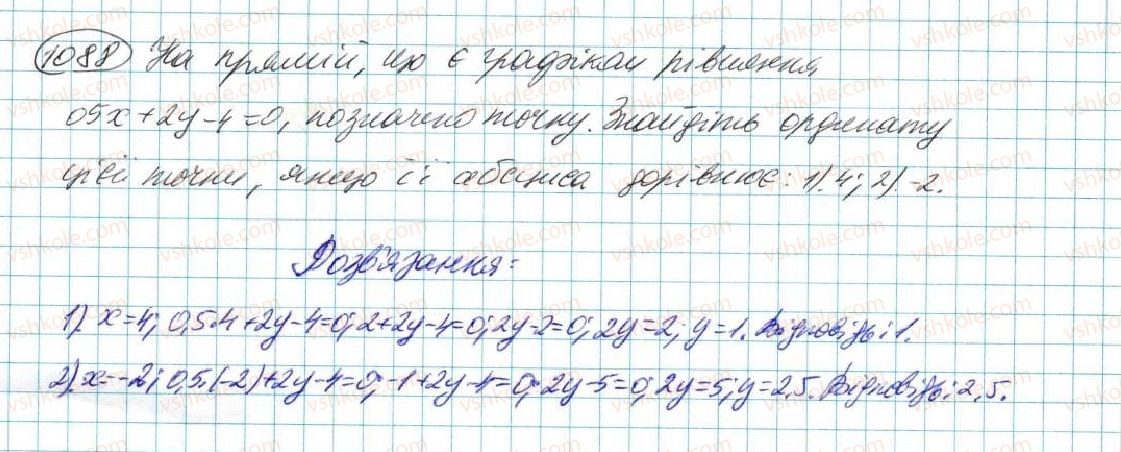 1088 На прямій, що є графіком рівняння
05x+2y-4=0, позначено точку. Знайдіть ординату
цієї точки, якщо її абсциса дорівнює: 1) 4; 2) -2.
Розв'язання:
1) x=4; 0,5·4+2y-4=0; 2+2y-4=0; 2y-2=0; 2y=2; y=1. Відповідь: 1.
2) x=-2; 0,5·(-2)+2y-4=0; -1+2y-4=0; 2y-5=0; 2y=5; y=2,5. Відповідь: 2,5.